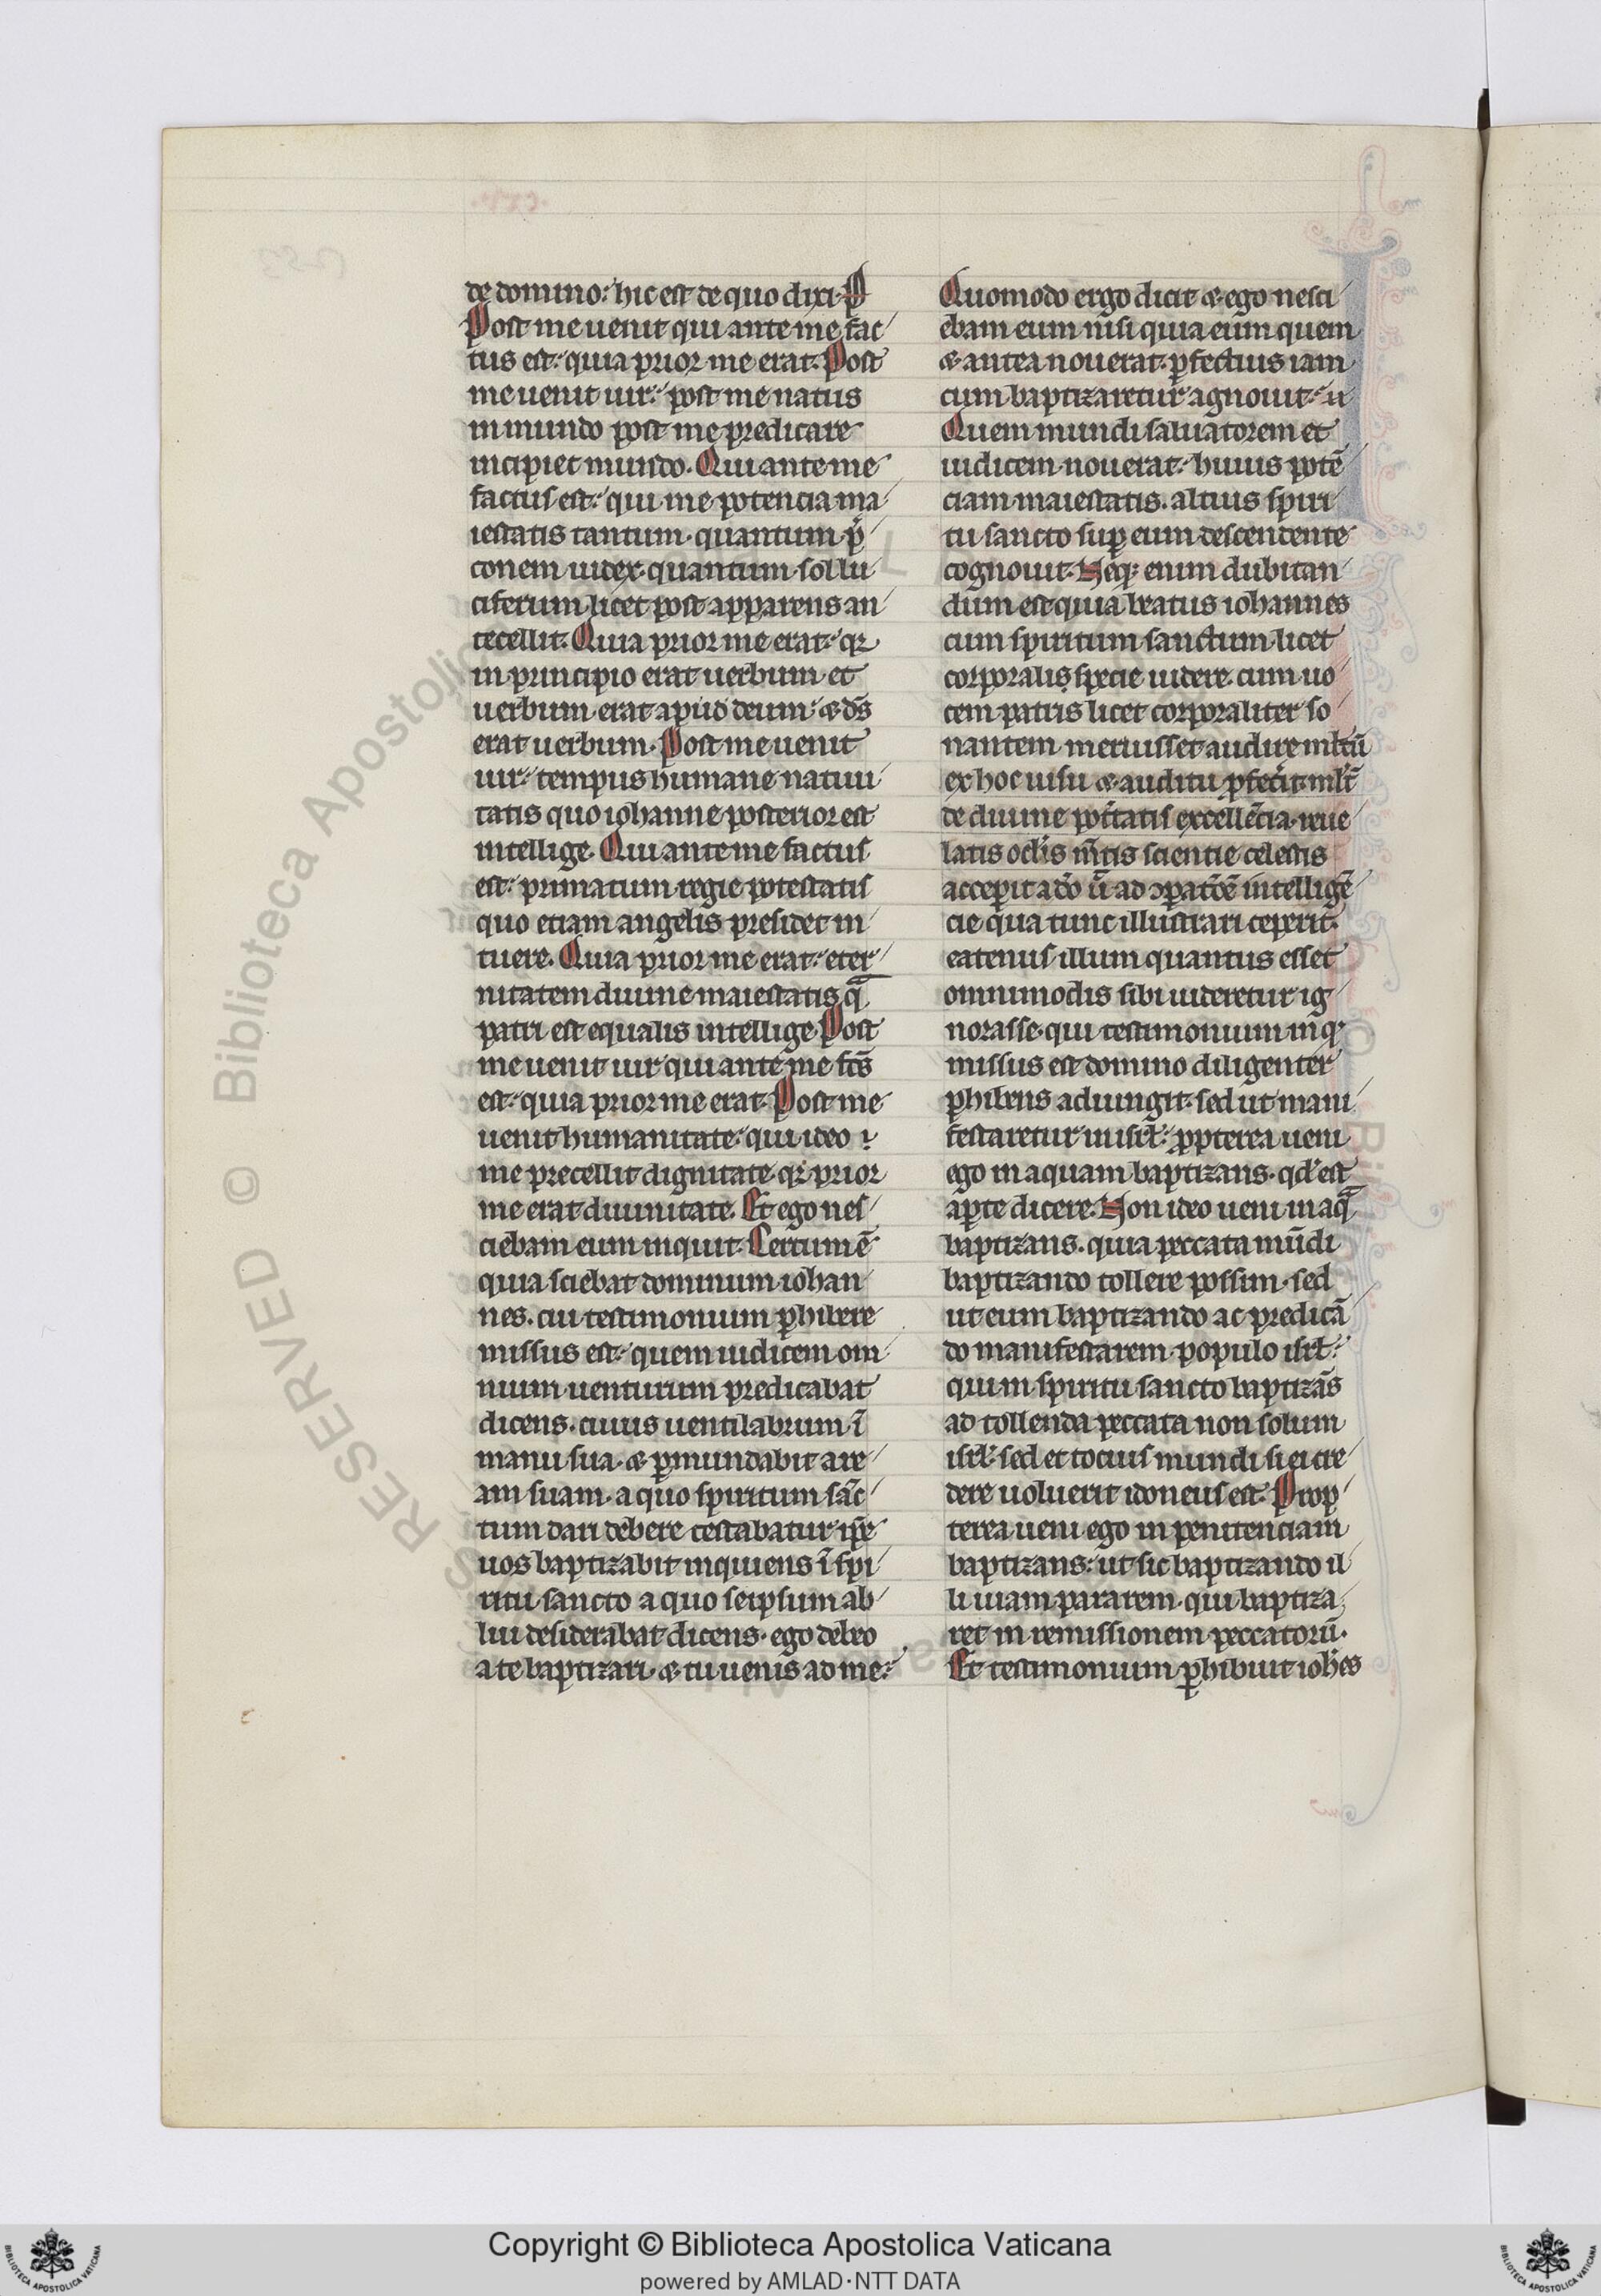 de domino: hic est de quo dixi. P
Post me uenit qui ante me fac
tus est: quia prior me erat. Post
me uenit uir: post me natus
in mundo post me predicare
incipiet mundo. Qui ante me
factus est: qui me potencia ma
iestatis tantum. quantum p̄
conem iudex. quantum sol lu
ciferum licet post apparens an
tecellit. Quia prior me erat: qꝛ
in principio erat uerbum et
uerbum erat apud deum: & ds̄
erat uerbum. Post me uenit
uir: tempus humane natiui
tatis quo iohanne posterior est
intellige. Qui ante me factus
est: primatum regie potestatis
quo etiam angelis presidet in
tuere. Quia prior me erat: eter
nitatem diuine maiestatis qᵃ
patri est equalis intellige. Post
me uenit uir qui ante me fc̄s
est: quia prior me erat. Post me
uenit humanitate: qui ideo ⁊
me precellit dignitate. qꝛ prior
me erat diuinitate. Et ego nes
ciebam eum inquit. Certum ē
quia sciebat dominum iohan
nes. cui testimonium ꝑhibere
missus est: quem iudicem om
nium uenturum predicabat
dicens. cuius uentilabrum ī
manu sua. & ꝑmundabit are
am suam. a quo spiritum sāc
tum dari debere testabatur ip̄e
uos baptizabit inquiens ī spi
ritu sancto a quo seipsum ab
lui desiderabat dicens. ego debeo
a te baptizari. & tu uenis ad me:
Quomodo ergo dicit & ego nesci
ebam eum nisi quia eum quem
& antea nouerat. ꝑfectius iam
cum baptizaretur agnouit:
Quem mundi saluatorem et
iudicem nouerat: huius potē
ciam maiestatis. altius spiri
tu sancto suꝑ eum descendente
cognouit. Neqꝫ enim dubitan
dum est quia beatus iohannes
cum spiritum sanctum licet
corporalis specie uidere. cum uo
cem patris licet corporaliter so
nantem meruisset audire ml̄tū
ex hoc uisu & auditu ꝓfecit. ml̄t
de diuine pot̄tatis excellēcia. reue
latis oclis m̄tis scientie celestis
accepit adō ū ad ↄꝑatōē intelligē
cie qua tunc illustrari ceperit.
eatenus illum quantus esset
omnimodis sibi uideretur ig
norasse. qui testimonium in qᵒ
missus est domino diligenter
ꝑhibens adiungit. sed ut mani
festaretur in isrl̄: ꝓpterea ueni
ego in aquam baptizans. qd̄ est
aꝑte dicere. Non ideo ueni in aqᵃ
baptizans. quia peccata mūdi
baptizando tollere possim. sed
ut eum baptizando ac predicā
do manifestarem populo isrl̄:
qui in spiritu sancto baptizās
ad tollenda peccata non solum
isrl̄. sed et tocius mundi si ei cre
dere uoluerit idoneus est. Prop
terea ueni ego in penitenciam
baptizans: ut sic baptizando il
li uiam pararem. qui baptiza
ret in remissionem peccatorū.
Et testimonium ꝑhibuit ioh̄es
© Biblioteca Apostolica
RESERVED
Copyright © Biblioteca Apostolica Vaticana
powered by AMLAD·NTT DATA